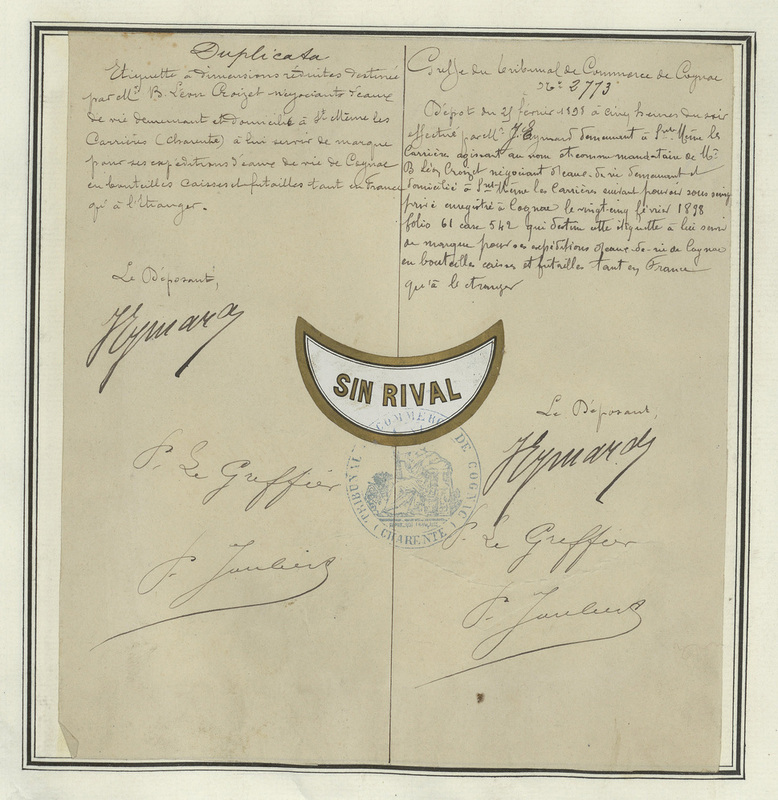 Duplicata
Etiquette à dimensions réduites destinée
par Mr B. Léon Croizet négociants d'eaux
de vie demeurant et domicilié à St Même les
Carrières (Charente) à lui servir de marque
pour ses expéditions d'eaux de vie de Cognac
en bouteilles caisses et futailles tant en France
qu'à l'étranger.
Le Déposant,
Hymard
P. Le Greffier
P. Joubert
Greffe du Tribunal de Commerce de Cognac
No 2773
Dépôt du 25 février 1898 à cinq heures du soir
effectué par Mr J. Eymard demeurant à St Même les
Carrière agissant au nom et comme mandataire de Mr
B Léon Croizet négociant d'eaux-de-vie demeurant et
domicilié à St Même les Carrières suivant pouvoir sous seing
privé enregistré à Cognac le vingt-cinq février 1898
folio 61 case 542 qui destine cette étiquette à lui servir
de marque pour ses expéditions d'eaux-de-vie de Cognac
en bouteilles caisses et futailles tant en France
qu'à le etranger
Le Déposant,
Hymard
P. Le Greffier
P. Joubert
SIN RIVAL
TRIBUNAL DE COMMERCE DE COGNAC
(CHARENTE)